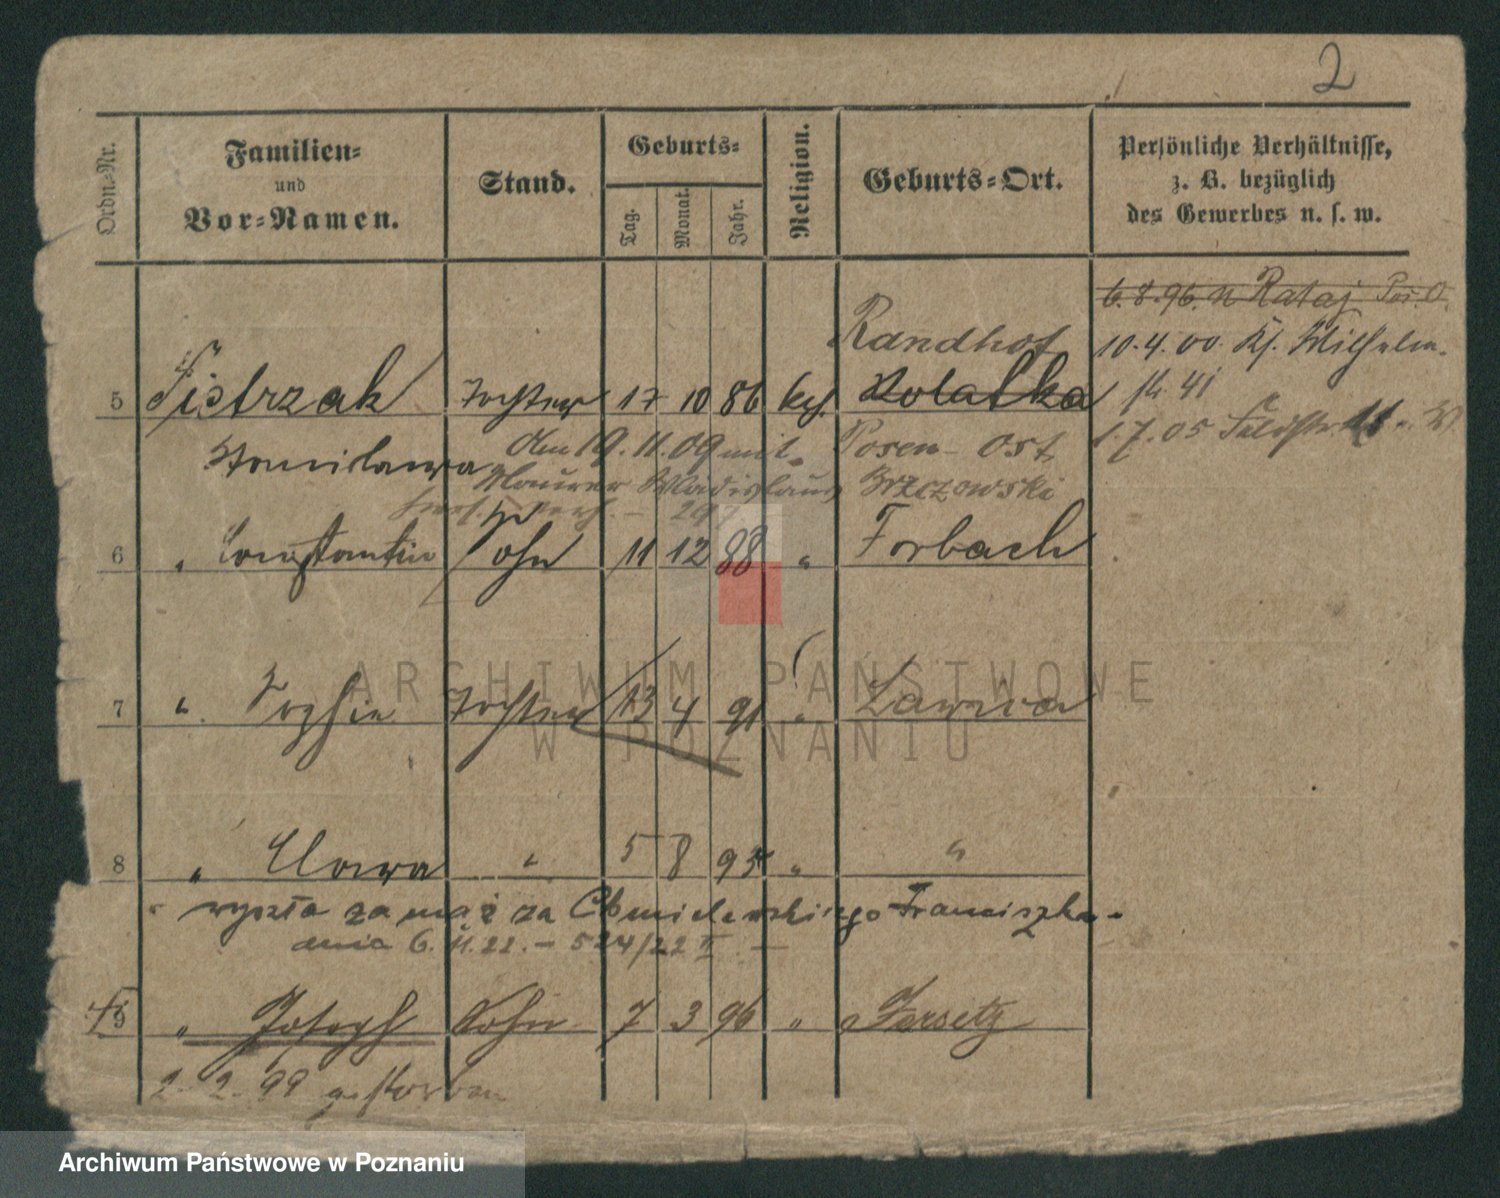 2
Ordn.-Nr.
Familien-
und
Vor-Namen.
Stand.
Geburts-
Tag.
Monat.
Jahr.
Religion.
Geburts-Ort.
Persönliche Verhältnisse,
z. B. bezüglich
des Gewerbes u. s. w.
6.8.96. n Rataj Pos. O.
Randhof 10.4.00 Wilhelm.
5 Pietrzak Tochter 17 10 86 kath. 41
Stanislawa den 19.11.09 mit Posen - Ost 1.7.05
Maurer Wladislaus Brzezowski
6 " Constantin Sohn 11 12 88 " Forbach
7 " Sophie Tochter 13 4 91 " Zawada
8 " Clara " 5 8 93 " "
wyszła za mąż za Chmielewskiego Franciszka
dnia 6.11.22. - 524/22 II -
9 " Joseph Sohn 7 3 96 " Jersitz
2.2.99 gestorben
ARCHIWUM PAŃSTWOWE
W POZNANIU
Archiwum Państwowe w Poznaniu